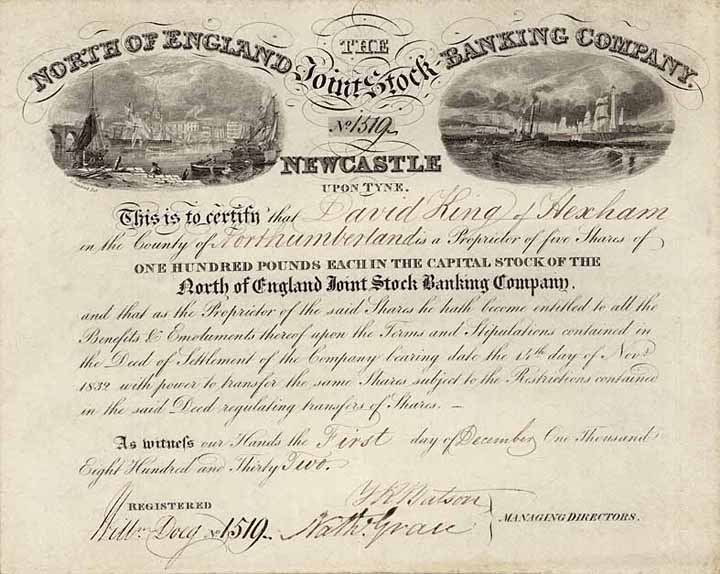 THE
NORTH OF ENGLAND Joint Stock BANKING COMPANY.
No 1519
NEWCASTLE
UPON TYNE.
This is to certify that David King of Hexham
in the County of Northumberland is a Proprietor of five Shares of
ONE HUNDRED POUNDS EACH IN THE CAPITAL STOCK OF THE
North of England Joint Stock Banking Company.
and that as the Proprietor of the said Shares he hath become entitled to all the
Benefits & Emoluments thereof upon the Terms and Stipulations contained in
the Deed of Settlement of the Company bearing date the 14th day of Novr
1832 with power to transfer the same Shares subject to the Restrictions contained
in the said Deed regulating transfers of Shares. —
As witness our Hands the First day of December One Thousand
Eight Hundred and Thirty Two.
REGISTERED
Willm Doeg No 1519.
Watson
Nathl Grace
MANAGING DIRECTORS.